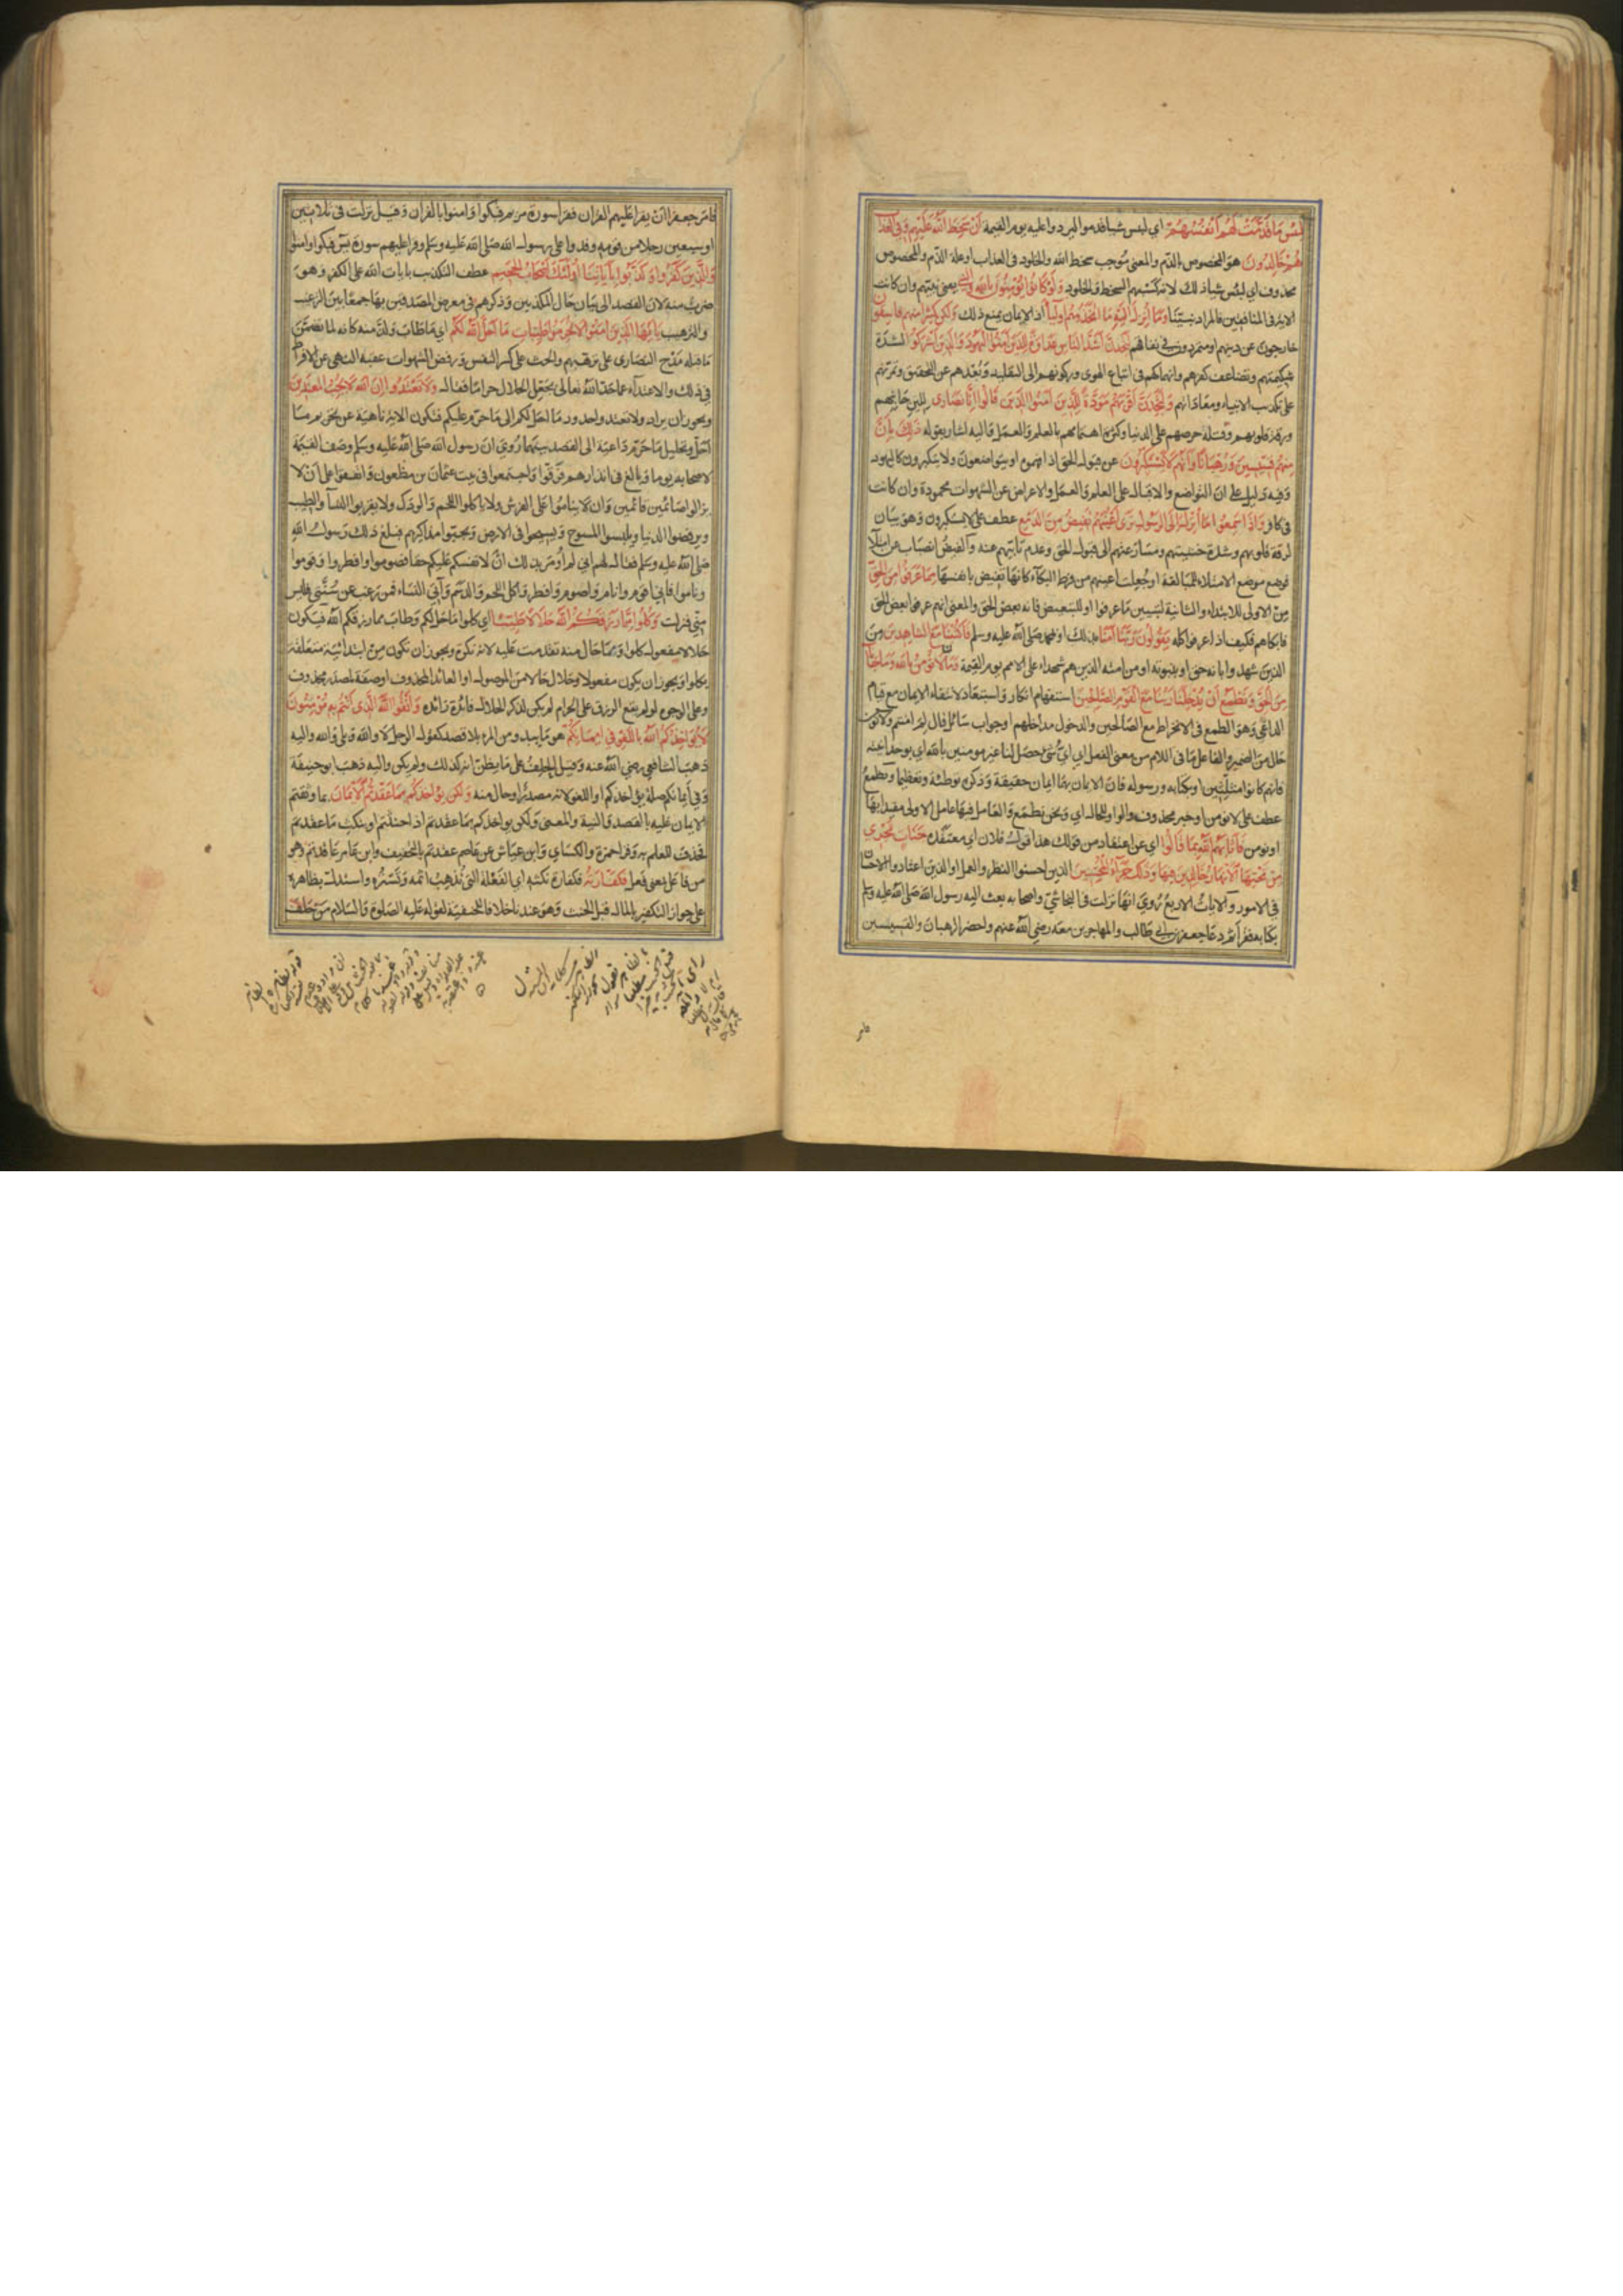 لبئس ما قدمت لهم أنفسهم اي لبئس شيأ قدموا ليردوا عليه يوم القيمة أن سخط الله عليهم وفي العذاب
هم خالدون هو المخصوص بالذم والمعنى موجب سخط الله والخلود في العذاب او علة الذم والمخصوص
محذوف اي لبئس شيأ ذلك لانه كسبهم السخط والخلود ولو كانوا يؤمنون بالله والنبي يعني نبيهم وان كانت
الاية في المنافقين فالمراد نبينا وما أنزل اليه ما اتخذوهم أولياء اذ الايمان يمنع ذلك ولكن كثيرا منهم فاسقون
خارجون عن دينهم او متمردون في نفاقهم لتجدن أشد الناس عداوة للذين آمنوا اليهود والذين أشركوا لشدة
شكيمتهم وتضاعف كفرهم وانهماكهم في اتباع الهوى وركونهم الى التقليد وبعدهم عن التحقيق وتمرنهم
على تكذيب الانبياء ومعاداتهم ولتجدن أقربهم مودة للذين آمنوا الذين قالوا إنا نصارى للين جانبهم
ورقة قلوبهم وقلة حرصهم على الدنيا وكثرة اهتمامهم بالعلم والعمل واليه اشار بقوله ذلك بأن
منهم قسيسين ورهبانا وأنهم لا يستكبرون عن قبول الحق اذا فهموه او يتواضعون ولا يتكبرون كاليهود
وفيه دليل على ان التواضع والاقبال على العلم والعمل والاعراض عن الشهوات محمودة وان كانت
في كافر واذا سمعوا ما أنزل الى الرسول ترى أعينهم تفيض من الدمع عطف على لا يستكبرون وهو بيان
لرقة قلوبهم وشدة خشيتهم ومسارعتهم الى قبول الحق وعدم تأبيهم عنه والفيض انصباب عن امتلاء
فوضع موضع الامتلاء للمبالغة او جعلت اعينهم من فرط البكاء كانها تفيض بانفسها مما عرفوا من الحق
من الاولى للابتداء والثانية لتبيين ما عرفوا او للتبعيض فانه بعض الحق والمعنى انهم عرفوا بعض الحق
فابكاهم فكيف اذا عرفوا كله يقولون ربنا آمنا بذلك او بمحمد صلى الله عليه وسلم فاكتبنا مع الشاهدين من
الذين شهدوا بانه حق او بنبوته او من امته الذين هم شهداء على الامم يوم القيمة وما لنا لا نؤمن بالله وما جاءنا
من الحق ونطمع أن يدخلنا ربنا مع القوم الصالحين استفهام انكار واستبعاد لانتفاء الايمان مع قيام
الداعي وهو الطمع في الانخراط مع الصالحين والدخول مداخلهم او جواب سائل قال لم امنتم ولا نؤمن
حال من الضمير والعامل ما في اللام من معنى الفعل اي اي شئ حصل لنا غير مومنين بالله اي بوحدانيته
فانهم كانوا مثلثين او بكتابه ورسوله فان الايمان بهما ايمان به حقيقة وذكره توطئة وتعظيما ونطمع
عطف على نؤمن او خبر محذوف والواو للحال اي ونحن نطمع والعامل فيها عامل الاولى مقيدا بها
او نومن فأثابهم الله بما قالوا اي عن اعتقاد من قولك هذا قول فلان اي معتقده جنات تجري
من تحتها الأنهار خالدين فيها وذلك جزآء المحسنين الذين احسنوا النظر والعمل او الذين اعتادوا الاحسان
في الامور والايات الاربع روي انها نزلت في النجاشي واصحابه بعث اليه رسول الله صلى الله عليه وسلم
بكتابه فقرأه ثم دعا جعفر بن ابي طالب والمهاجرين معه رضي الله عنهم واحضر الرهبان والقسيسين
فامر
فامر جعفرا ان يقرا عليهم القران فقرا سورة مريم فبكوا وآمنوا بالقران وقيل نزلت في ثلاثين
او سبعين رجلا من قومه وفدوا على رسول الله صلى الله عليه وسلم وقرا عليهم سورة يس فبكوا وامنوا
والذين كفروا وكذبوا بآياتنا أولئك أصحاب الجحيم عطف التكذيب بايات الله على الكفر وهو
ضرب منه لان القصد الى بيان حال المكذبين وذكرهم في معرض المصدقين بها جمعا بين الترغيب
والترهيب يا أيها الذين آمنوا لا تحرموا طيبات ما أحل الله لكم اي ما طاب ولذ منه كانه لما تضمن
ما قبله مدح النصارى على ترهبهم والحث على كسر النفس ورفض الشهوات عقبه النهي عن الافراط
في ذلك والاعتداء عما حد الله تعالى بجعل الحلال حراما فقال ولا تعتدوا إن الله لا يحب المعتدين
ويجوز ان يراد ولا تعتدوا حدود ما احل لكم الى ما حرم عليكم فتكون الاية ناهية عن تحريم ما
احل وتحليل ما حرم داعية الى القصد بينهما روي ان رسول الله صلى الله عليه وسلم وصف القيمة
لاصحابه يوما وبالغ في انذارهم فرقوا واجتمعوا في بيت عثمان بن مظعون واتفقوا على ان لا
يزالوا صائمين قائمين وان لا يناموا على الفرش ولا ياكلوا اللحم والودك ولا يقربوا النسآ والطيب
ويرفضوا الدنيا ويلبسوا المسوح ويسيحوا في الارض ويجبوا مذاكيرهم فبلغ ذلك رسول الله
صلى الله عليه وسلم فقال لهم اني لم أومر بذلك ان لانفسكم عليكم حقا فصوموا وافطروا وقوموا
وناموا فاني اقوم وانام واصوم وافطر واكل اللحم والدسم وآتي النساء فمن رغب عن سنتي فليس
مني فنزلت وكلوا مما رزقكم الله حلالا طيبا اي كلوا ما حل لكم وطاب مما رزقكم الله فيكون
حلالا مفعول كلوا ومما حال منه تقدمت عليه لانه نكرة ويجوز ان تكون من ابتدائية متعلقة
بكلوا ويجوز ان يكون مفعولا وحلال حالا من الموصول او العائد المحذوف او صفة لمصدر محذوف
وعلى الوجوه لو لم يقع الرزق على الحرام لم يكن لذكر الحلال فائدة زائدة واتقوا الله الذي أنتم به مؤمنون
لا يؤاخذكم الله باللغو في أيمانكم هو ما يبدو من المرء بلا قصد كقول الرجل لا والله وبلى والله واليه
ذهب الشافعي رضي الله عنه وقيل الحلف على ما يظن انه كذلك ولم يكن واليه ذهب ابو حنيفة
وفي أيمانكم صلة يؤاخذكم او اللغو لانه مصدر او حال منه ولكن يؤاخذكم بما عقدتم الأيمان بما وثقتم
الايمان عليه بالقصد والنية والمعنى ولكن يواخذكم بما عقدتم اذا حنثتم او بنكث ما عقدتم
فحذف للعلم به وقرا حمزة والكساي وابن عياش عن عاصم عقدتم بالتخفيف وابن عامر عاقدتم وهو
من فاعل بمعنى فعل فكفارته فكفارة نكثه اي الفعلة التي تذهب اثمه وتستره واستدل بظاهره
على جواز التكفير بالمال قبل الحنث وهو عندنا خلافا للحنفية لقوله عليه الصلوة والسلام من حلف